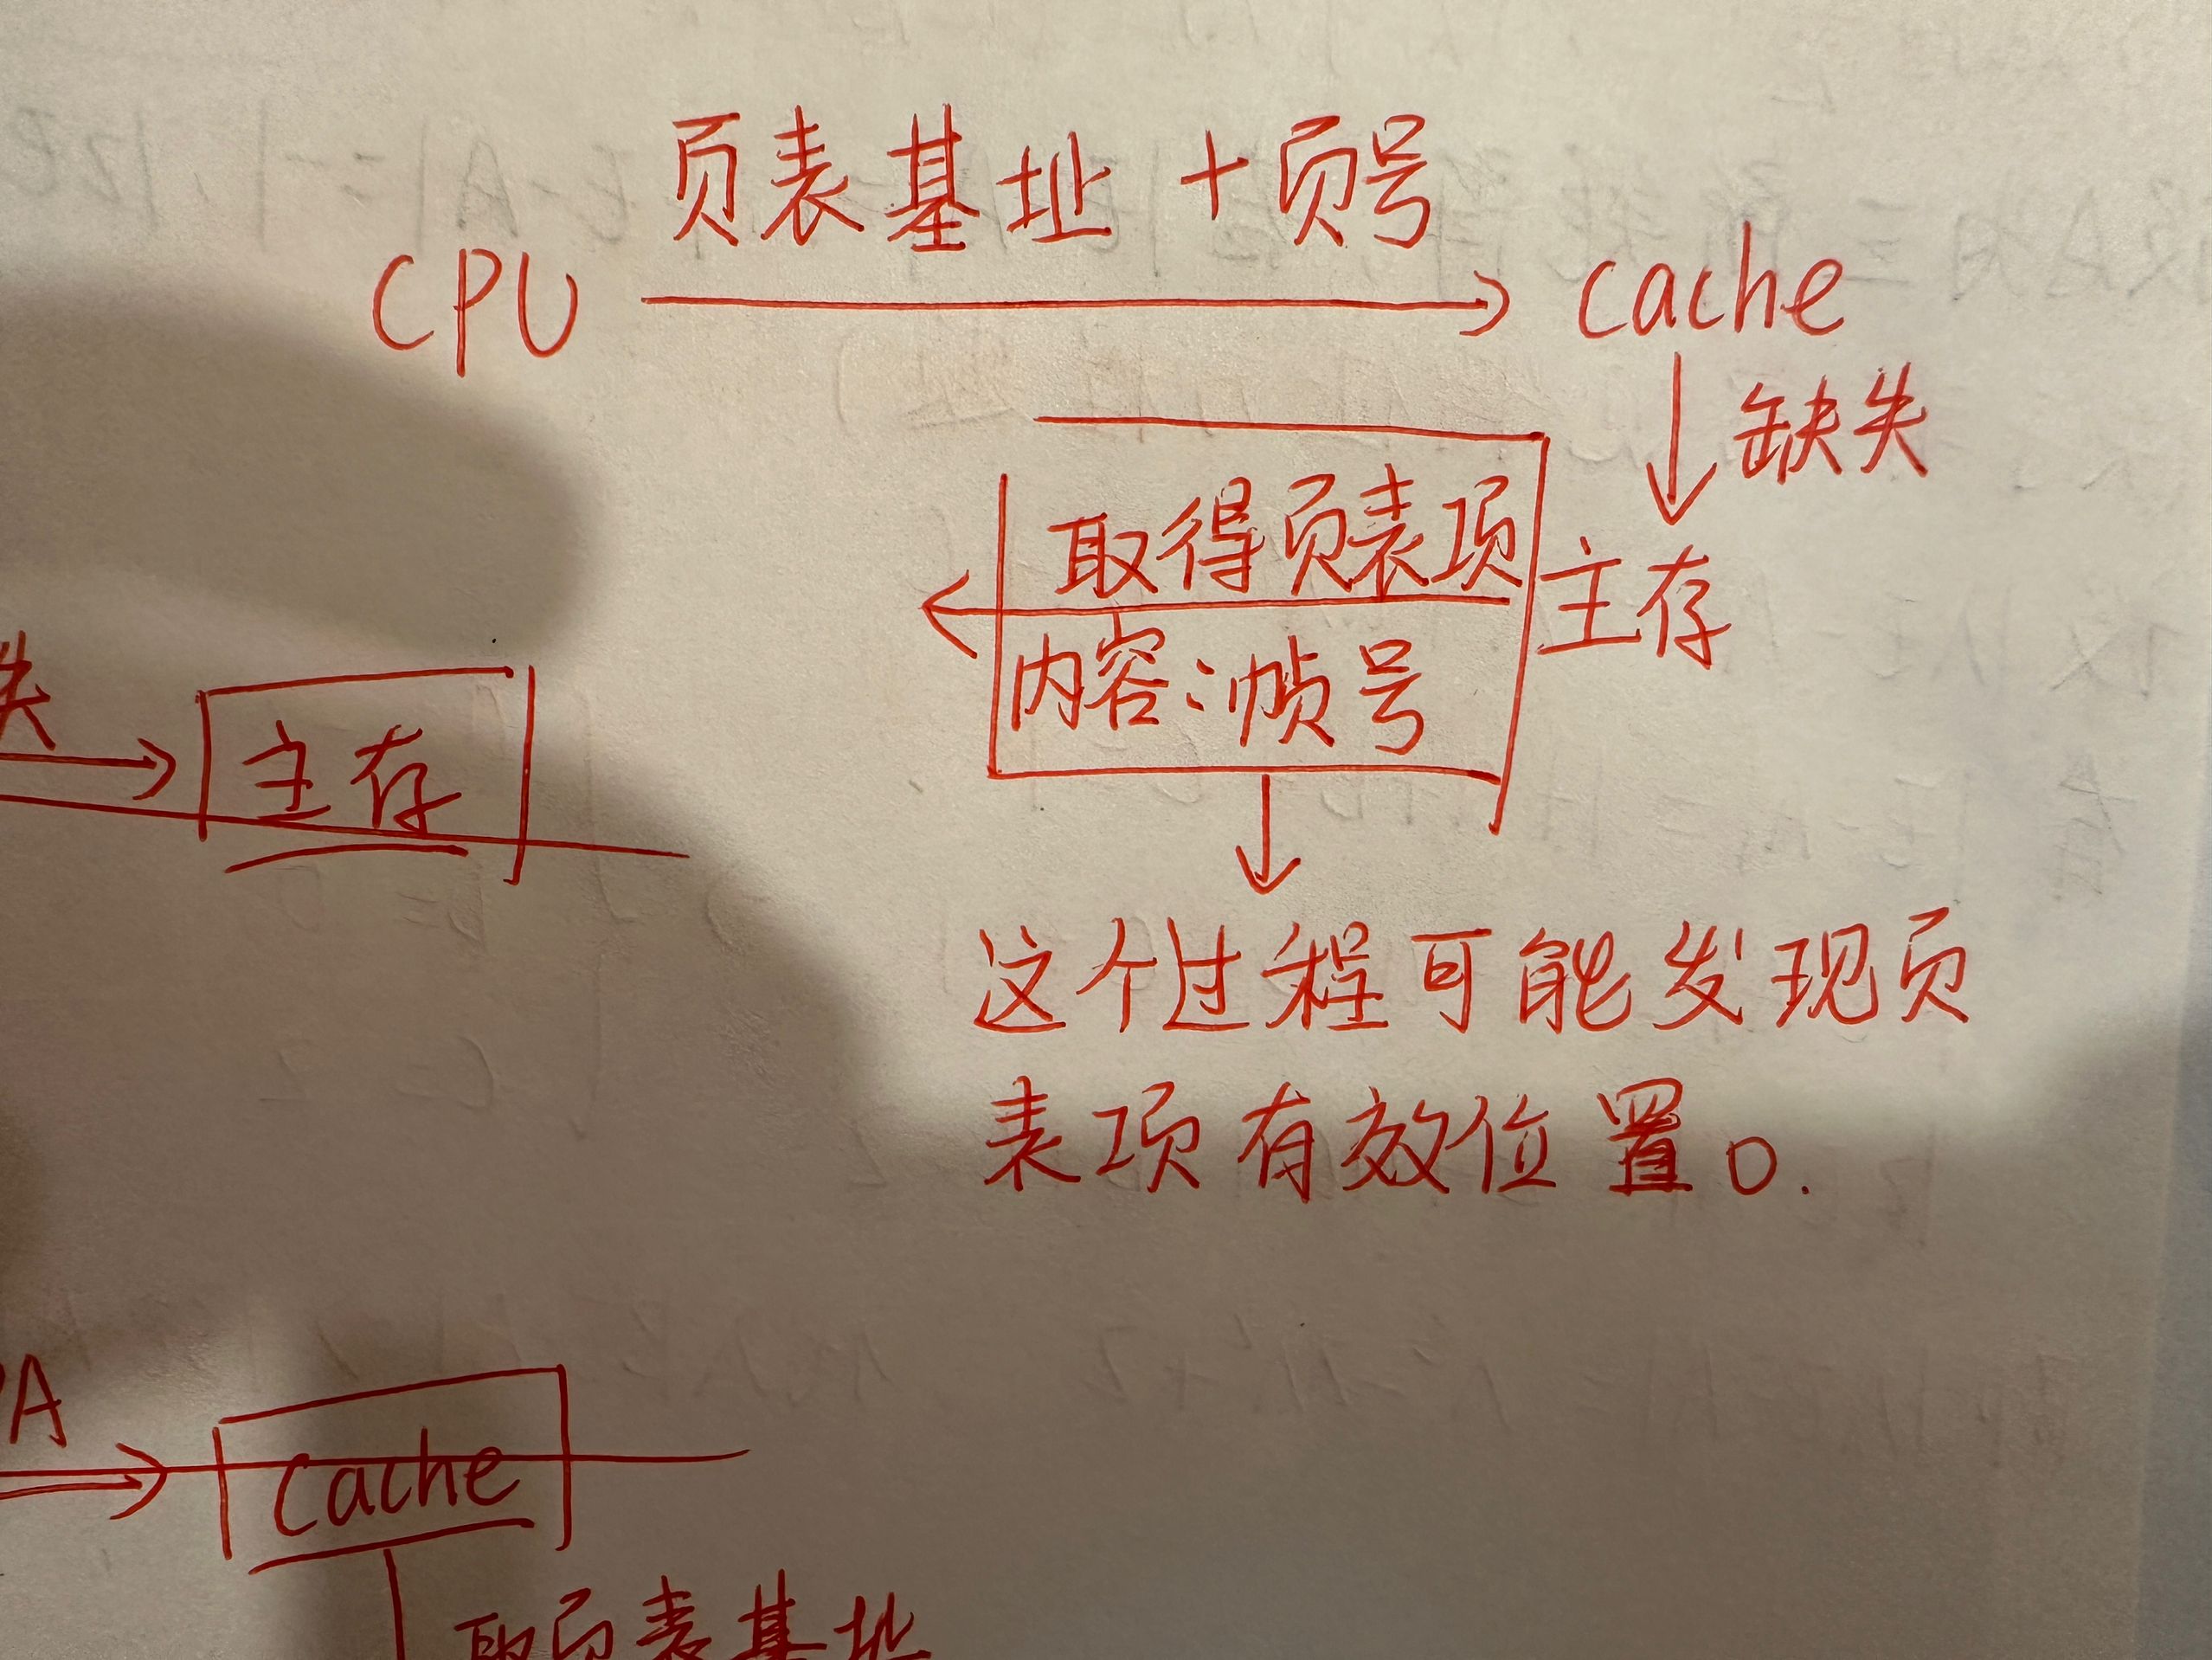 页表基址 + 页号
CPU
cache
缺失
取得页表项
主存
内容:帧号
失
主存
这个过程可能发现页
表项有效位置0.
A
cache
取页表基址